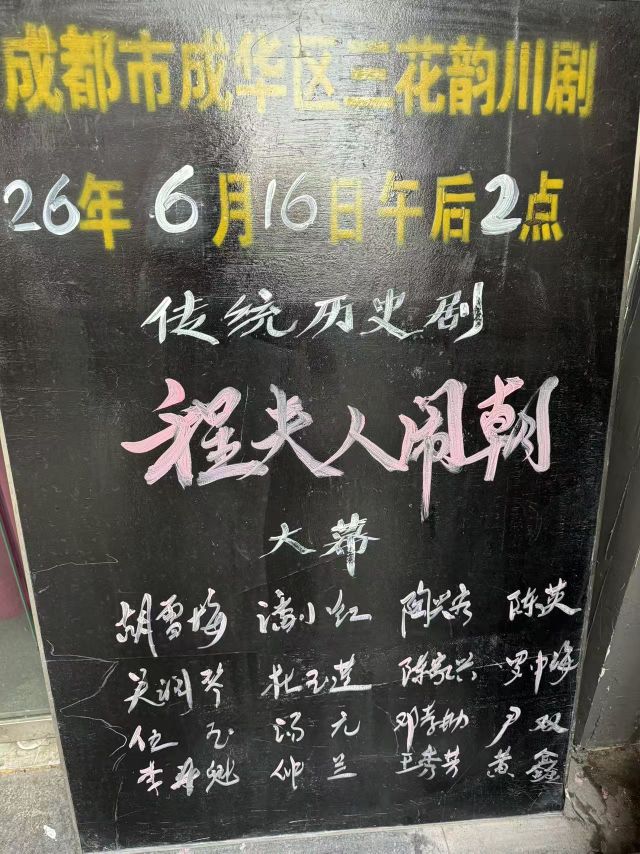 成都市成华区三花韵川剧
26年6月16日午后2点
传统历史剧
程夫人闹朝
大幕
胡雪梅 潘小红 陶兴容 陈英
吴润琴 杜玉莲 陈家兴 罗中海
伍 汤元 邓孝勋 尹双
李 魁 仲兰 卫秀芳 黄鑫